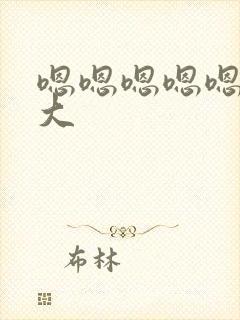 嗯嗯嗯嗯嗯
大
布林